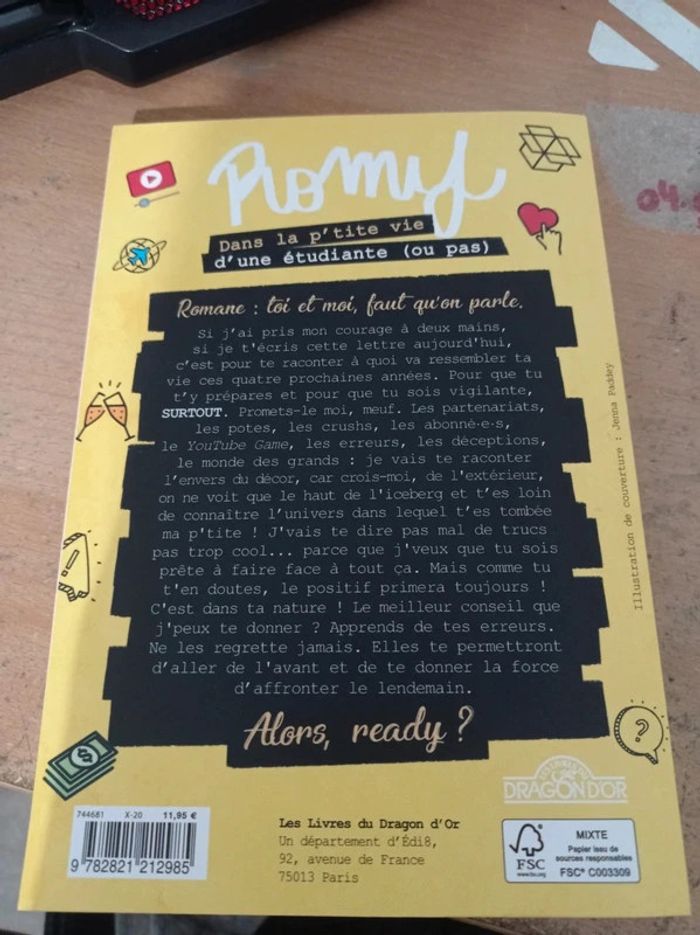 Romy
Dans la p'tite vie
d'une étudiante (ou pas)
Romane : toi et moi, faut qu'on parle.
Si j'ai pris mon courage à deux mains,
si je t'écris cette lettre aujourd'hui,
c'est pour te raconter à quoi va ressembler ta
vie ces quatre prochaines années. Pour que tu
t'y prépares et pour que tu sois vigilante,
SURTOUT. Promets-le moi, meuf. Les partenariats,
les potes, les crushs, les abonné·e·s,
le YouTube Game, les erreurs, les déceptions,
le monde des grands : je vais te raconter
l'envers du décor, car crois-moi, de l'extérieur,
on ne voit que le haut de l'iceberg et t'es loin
de connaître l'univers dans lequel t'es tombée
ma p'tite ! J'vais te dire pas mal de trucs
pas trop cool... parce que j'veux que tu sois
prête à faire face à tout ça. Mais comme tu
t'en doutes, le positif primera toujours !
C'est dans ta nature ! Le meilleur conseil que
j'peux te donner ? Apprends de tes erreurs.
Ne les regrette jamais. Elles te permettront
d'aller de l'avant et de te donner la force
d'affronter le lendemain.
Alors, ready ?
Illustration de couverture : Jenna Paddey
744681 X-20 11,95 €
9 782821 212985
Les Livres du Dragon d'Or
Un département d'Édi8,
92, avenue de France
75013 Paris
LES LIVRES DU
DRAGON D'OR
FSC
www.fsc.org
MIXTE
Papier issu de
sources responsables
FSC® C003309